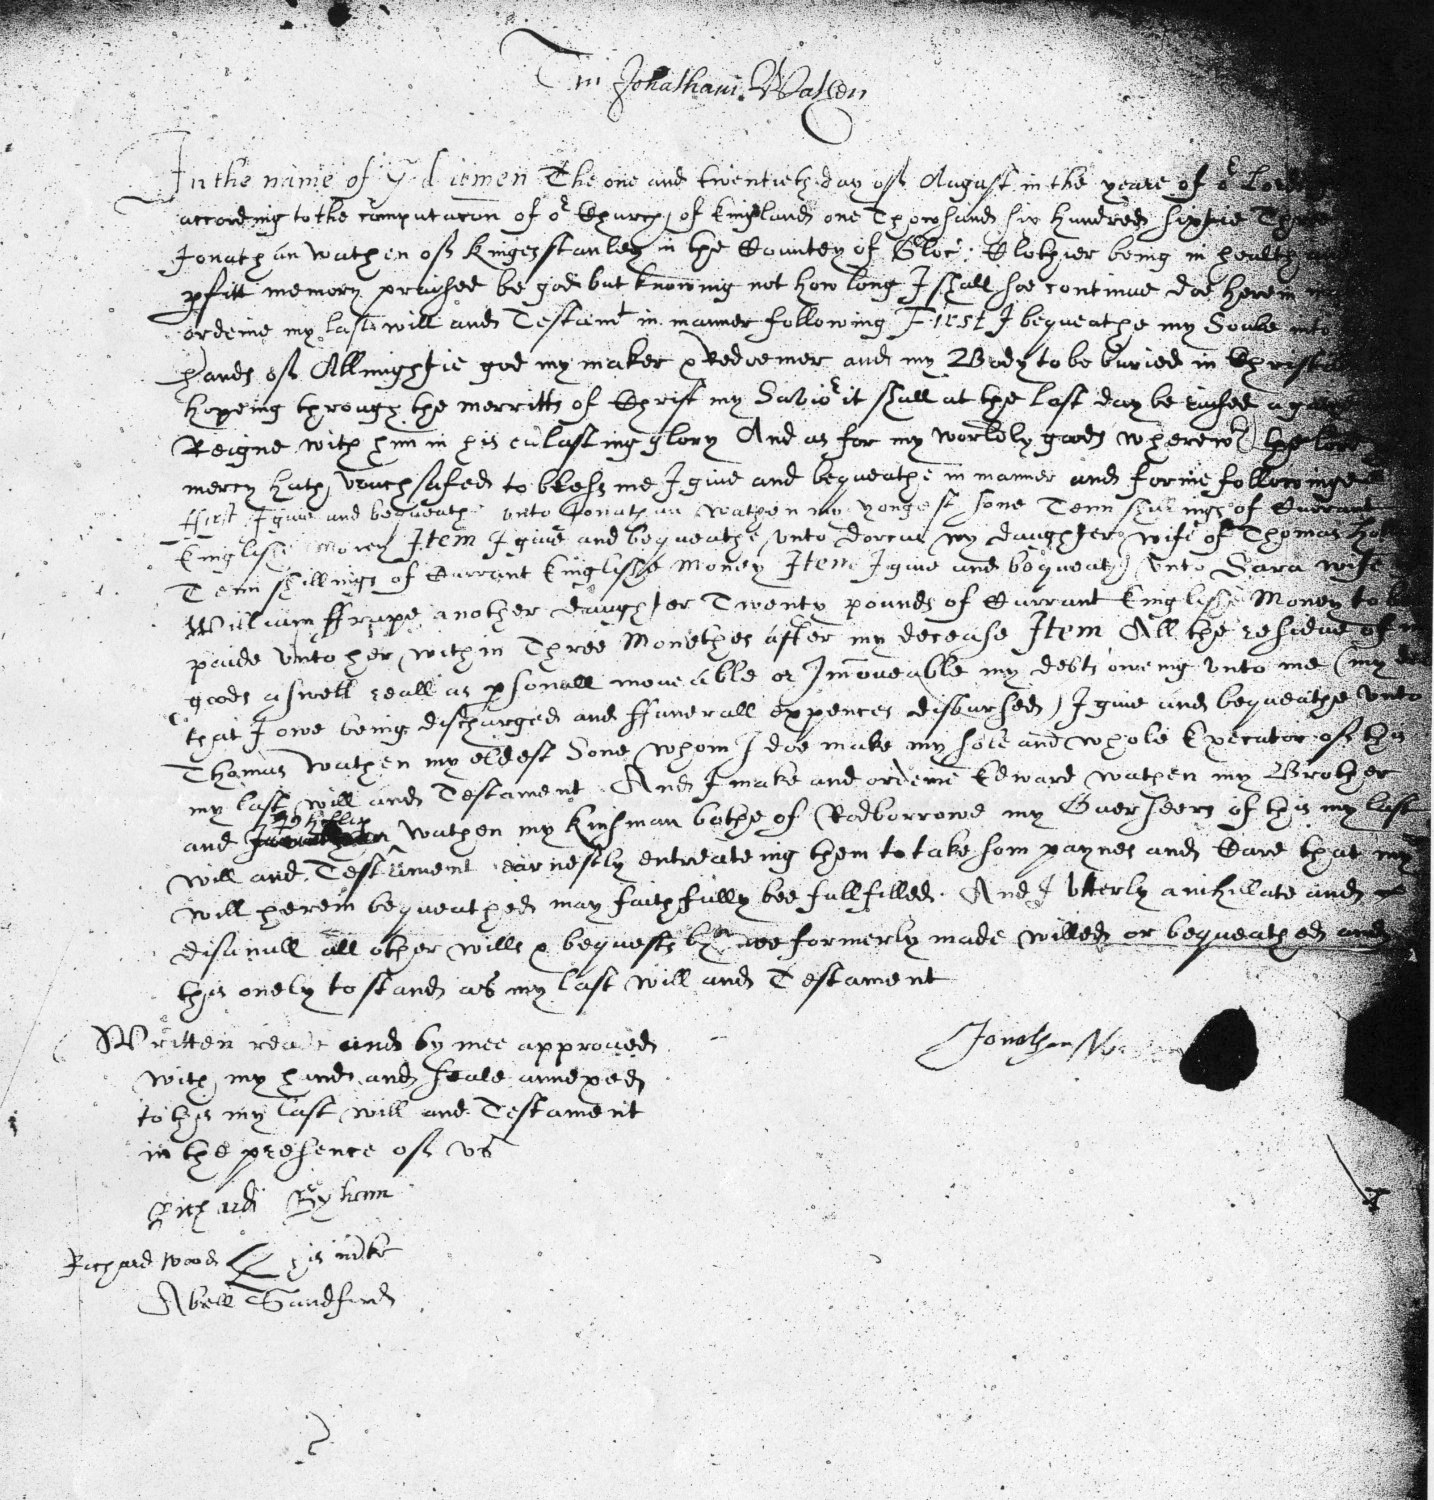 Tm Jonathani Wathen
In the name of God Amen The one and twentieth day of August in the yeare of or Lord
according to the computacon of or Church of England one Thowsand six hundred sixtie Three
Jonathan Wathen of Kingesstanley in the Countey of Gloc. Clothier being in health and
pfitt memory praised be god but knowing not how long I shall soe continue doe herein
ordeine my last will and Testamt in manner following First I bequeathe my Soule into
hands of Allmightie god my maker & Redeemer and my Body to be buried in Christian
hopeing through the merritts of Christ my Savior it shall at the last day be raised againe
Reigne with him in his evlasting glory And as for my worldly goods wherewth the lord
mercy hath vouchsafed to bless me I give and bequeathe in manner and forme followinge
ffirst I give and bequeathe unto Jonathan Wathen my yongest sone Tenn shillings of Currant
Englishe Money Item I give and bequeathe unto Dorcas my daughter wife of Thomas
Tenn shillings of Currant Englishe Money Item I give and bequeath unto Sara wife
William ffrape another daughter Twenty pounds of Currant Englishe Money to be
paide unto her within Three Monethes after my decease Item All the residue of my
goods aswell reall as psonall moveable or Imoveable my debts oweing unto me (my
that I owe being discharged and ffunerall expences disbursed) I give and bequeathe unto
Thomas Wathen my eldest Sone whom I doe make my sole and whole Executor of this
my last will and Testament And I make and ordeine Edward Wathen my Brother
and Wathen my kinsman bothe of Rodborrowe my Overseers of this my last
will and Testament earnestly entreateing them to take som paynes and Care that my
will herein bequeathed may faithfully bee fullfilled. And I utterly anihillate and
disanull all other wills & bequests by mee formerly made willed or bequeathed and
this onely to stand as my last will and Testament
Written reade and by mee approved
with my hand and seale annexed
to this my last will and Testament
in the presence of us
Jonathan Wathen
Richard
Richard Wood his mke
Abell Sandford